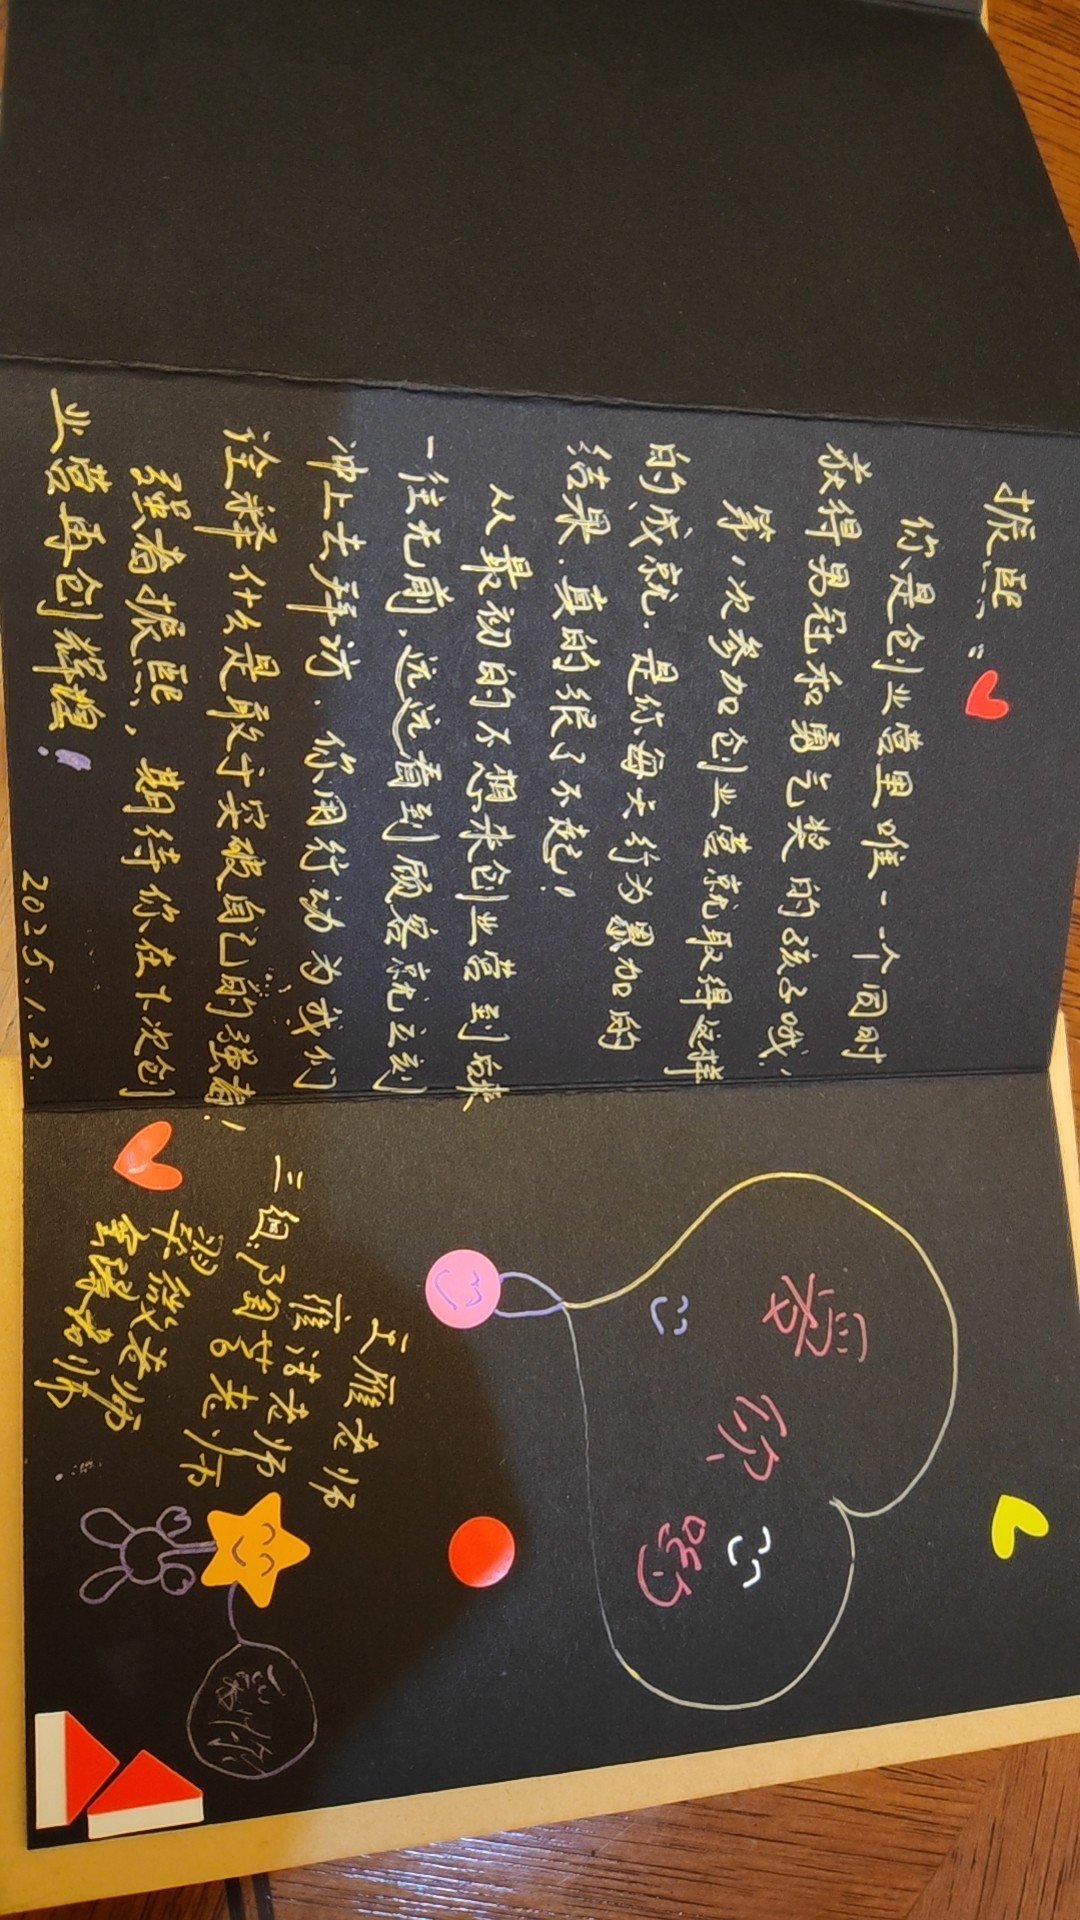 振熙:
你是创业营里唯一一个同时
获得男冠和勇气奖的孩子哦!
第一次参加创业营就取得这样
的成就.是你每天行为累加的
结果.真的很了不起!
从最初的不想来创业营到后来
一往无前,远远看到顾客就立刻
冲上去拜访.你用行动为我们
诠释什么是敢于突破自己的强者!
强者振熙,期待你在下次创
业营再创辉煌!
2025.1.22.
爱
你
哟
王雁老师
雅洁老师
三组:陶营老师
老师
老师
爱你